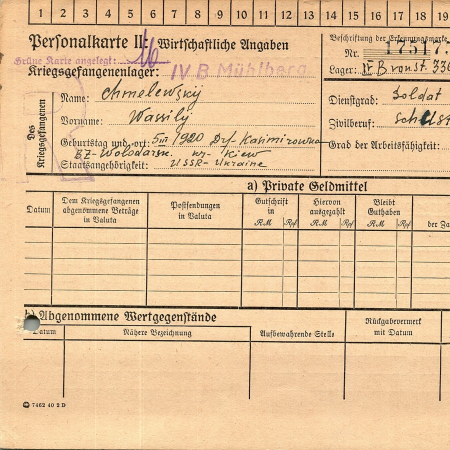 1 2 3 4 5 6 7 8 9 10 11 12 13 14 15 16 17 18 19
Personalkarte II: Wirtschaftliche Angaben
Beschriftung der Erkennungsmarke
Nr. 17517
Grüne Karte angelegt:
Kriegsgefangenenlager: IV B Mühlberg.
Lager: IV B
Des Kriegsgefangenen
Name: Chmelewskÿ
Dienstgrad: Soldat
Vorname: Wassilÿ
Zivilberuf:
Geburtstag und -ort: 5 III 1920 Drf. Kasimirowna
Grad der Arbeitsfähigkeit:
BZ-Wolodarsk. kr- Kiew
Staatsangehörigkeit: USSR-Ukraine
a) Private Geldmittel
Datum
Dem Kriegsgefangenen abgenommene Beträge in Valuta
Postsendungen in Valuta
Gutschrift in
RM Rpf
Hiervon ausgezahlt
RM Rpf
Bleibt Guthaben
RM Rpf
der
b) Abgenommene Wertgegenstände
Datum
Nähere Bezeichnung
Aufbewahrende Stelle
Rückgabevermerk mit Datum
7462 40 2 D